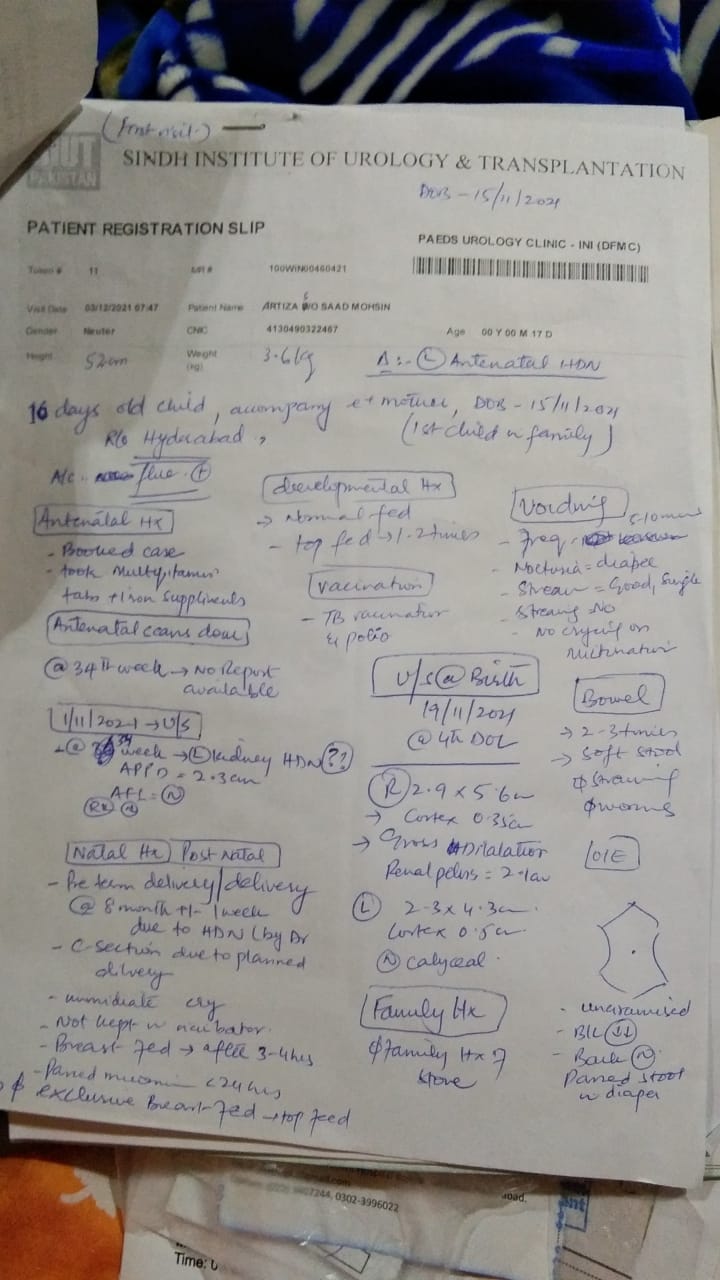 (First visit)
SIUT
PAKISTAN
SINDH INSTITUTE OF UROLOGY & TRANSPLANTATION
DOB - 15/11/2021
PATIENT REGISTRATION SLIP
PAEDS UROLOGY CLINIC - INI (DFMC)
Token # 11 MR # 100WIN00460421
Visit Date 03/12/2021 07:47 Patient Name ARTIZA S/O SAAD MOHSIN
Gender Neuter CNIC 4130490322467 Age 00 Y 00 M 17 D
Height 52cm Weight (kg) 3.6kg Δ:- (L) Antenatal HDN
16 days old child, accompany mother, DOB - 15/11/2021
R/o Hyderabad, (1st child in family)
A/c Flue (+)
Antenatal Hx
- Booked case
- took Multyvitamin
tabs + iron suppliments
Antenatal scans done
@ 34th week → No Report
available
1/11/2021 → U/S
week → (L) kidney HDN (??)
APPD = 2.3cm
AFL = (N)
Natal Hx / Post Natal
- Pre term delivery/delivery
@ 8 month +/- 1 week
due to HDN (by Dr
- C-section due to planned
dilvery
- immidiate cry
- Not kept in incubator
- Breast fed → after 3-4hrs
- Passed <24hrs
ɸ exclusive Breast fed → top feed
developmental Hx
→ Normal fed
- top fed → 1-2 times
vaccination
- TB vaccination
& polio
U/S @ Birth
19/11/2021
@ 4th DOL
(R) 2.9 x 5.6cm
→ Cortex 0.35cm
→ Gross Dilalation
Renal pelvis = 2.1cm
(L) 2.3 x 4.3cm
Cortex 0.5cm
(N) calyceal.
Family Hx
ɸ family Hx of
stone
Voiding
- Freq - 5-10 mins
- Nocturia = diaper
- Stream = Good, Single
- Straing No
- No crying on
micturation
Bowel
→ 2-3 times
→ Soft stool
ɸ straining
ɸ worms
O/E
- uncircumised
- B/L (↓↓)
- Back (N)
Passed stool
in diaper
7244, 0302-3996022
Time: